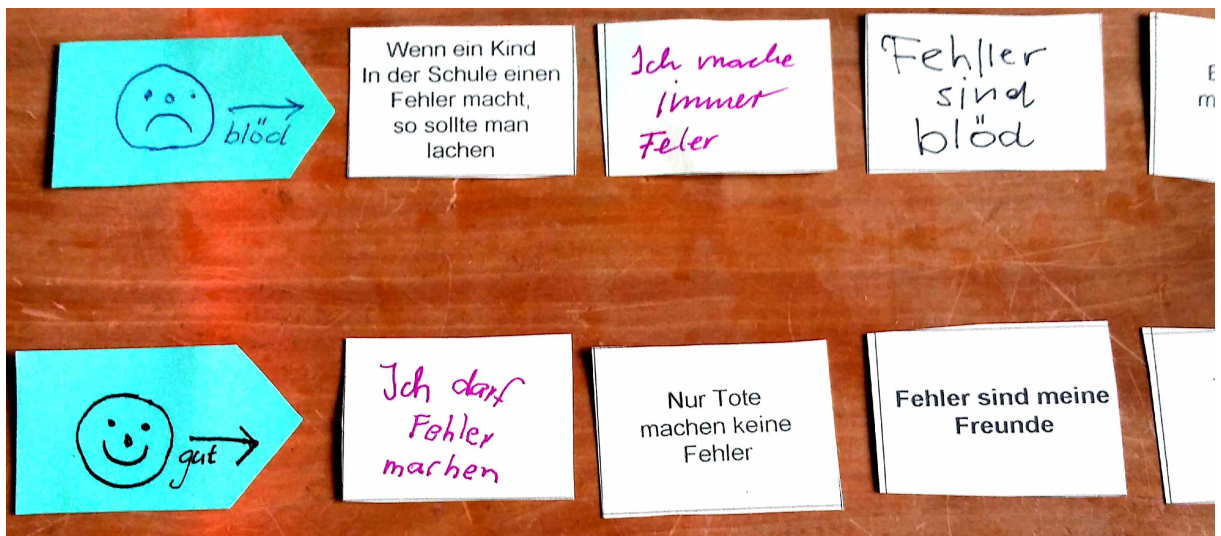 blöd
Wenn ein Kind
In der Schule einen
Fehler macht,
so sollte man
lachen
Ich mache
immer
Feler
Fehller
sind
blöd
gut
Ich darf
Fehler
machen
Nur Tote
machen keine
Fehler
Fehler sind meine
Freunde